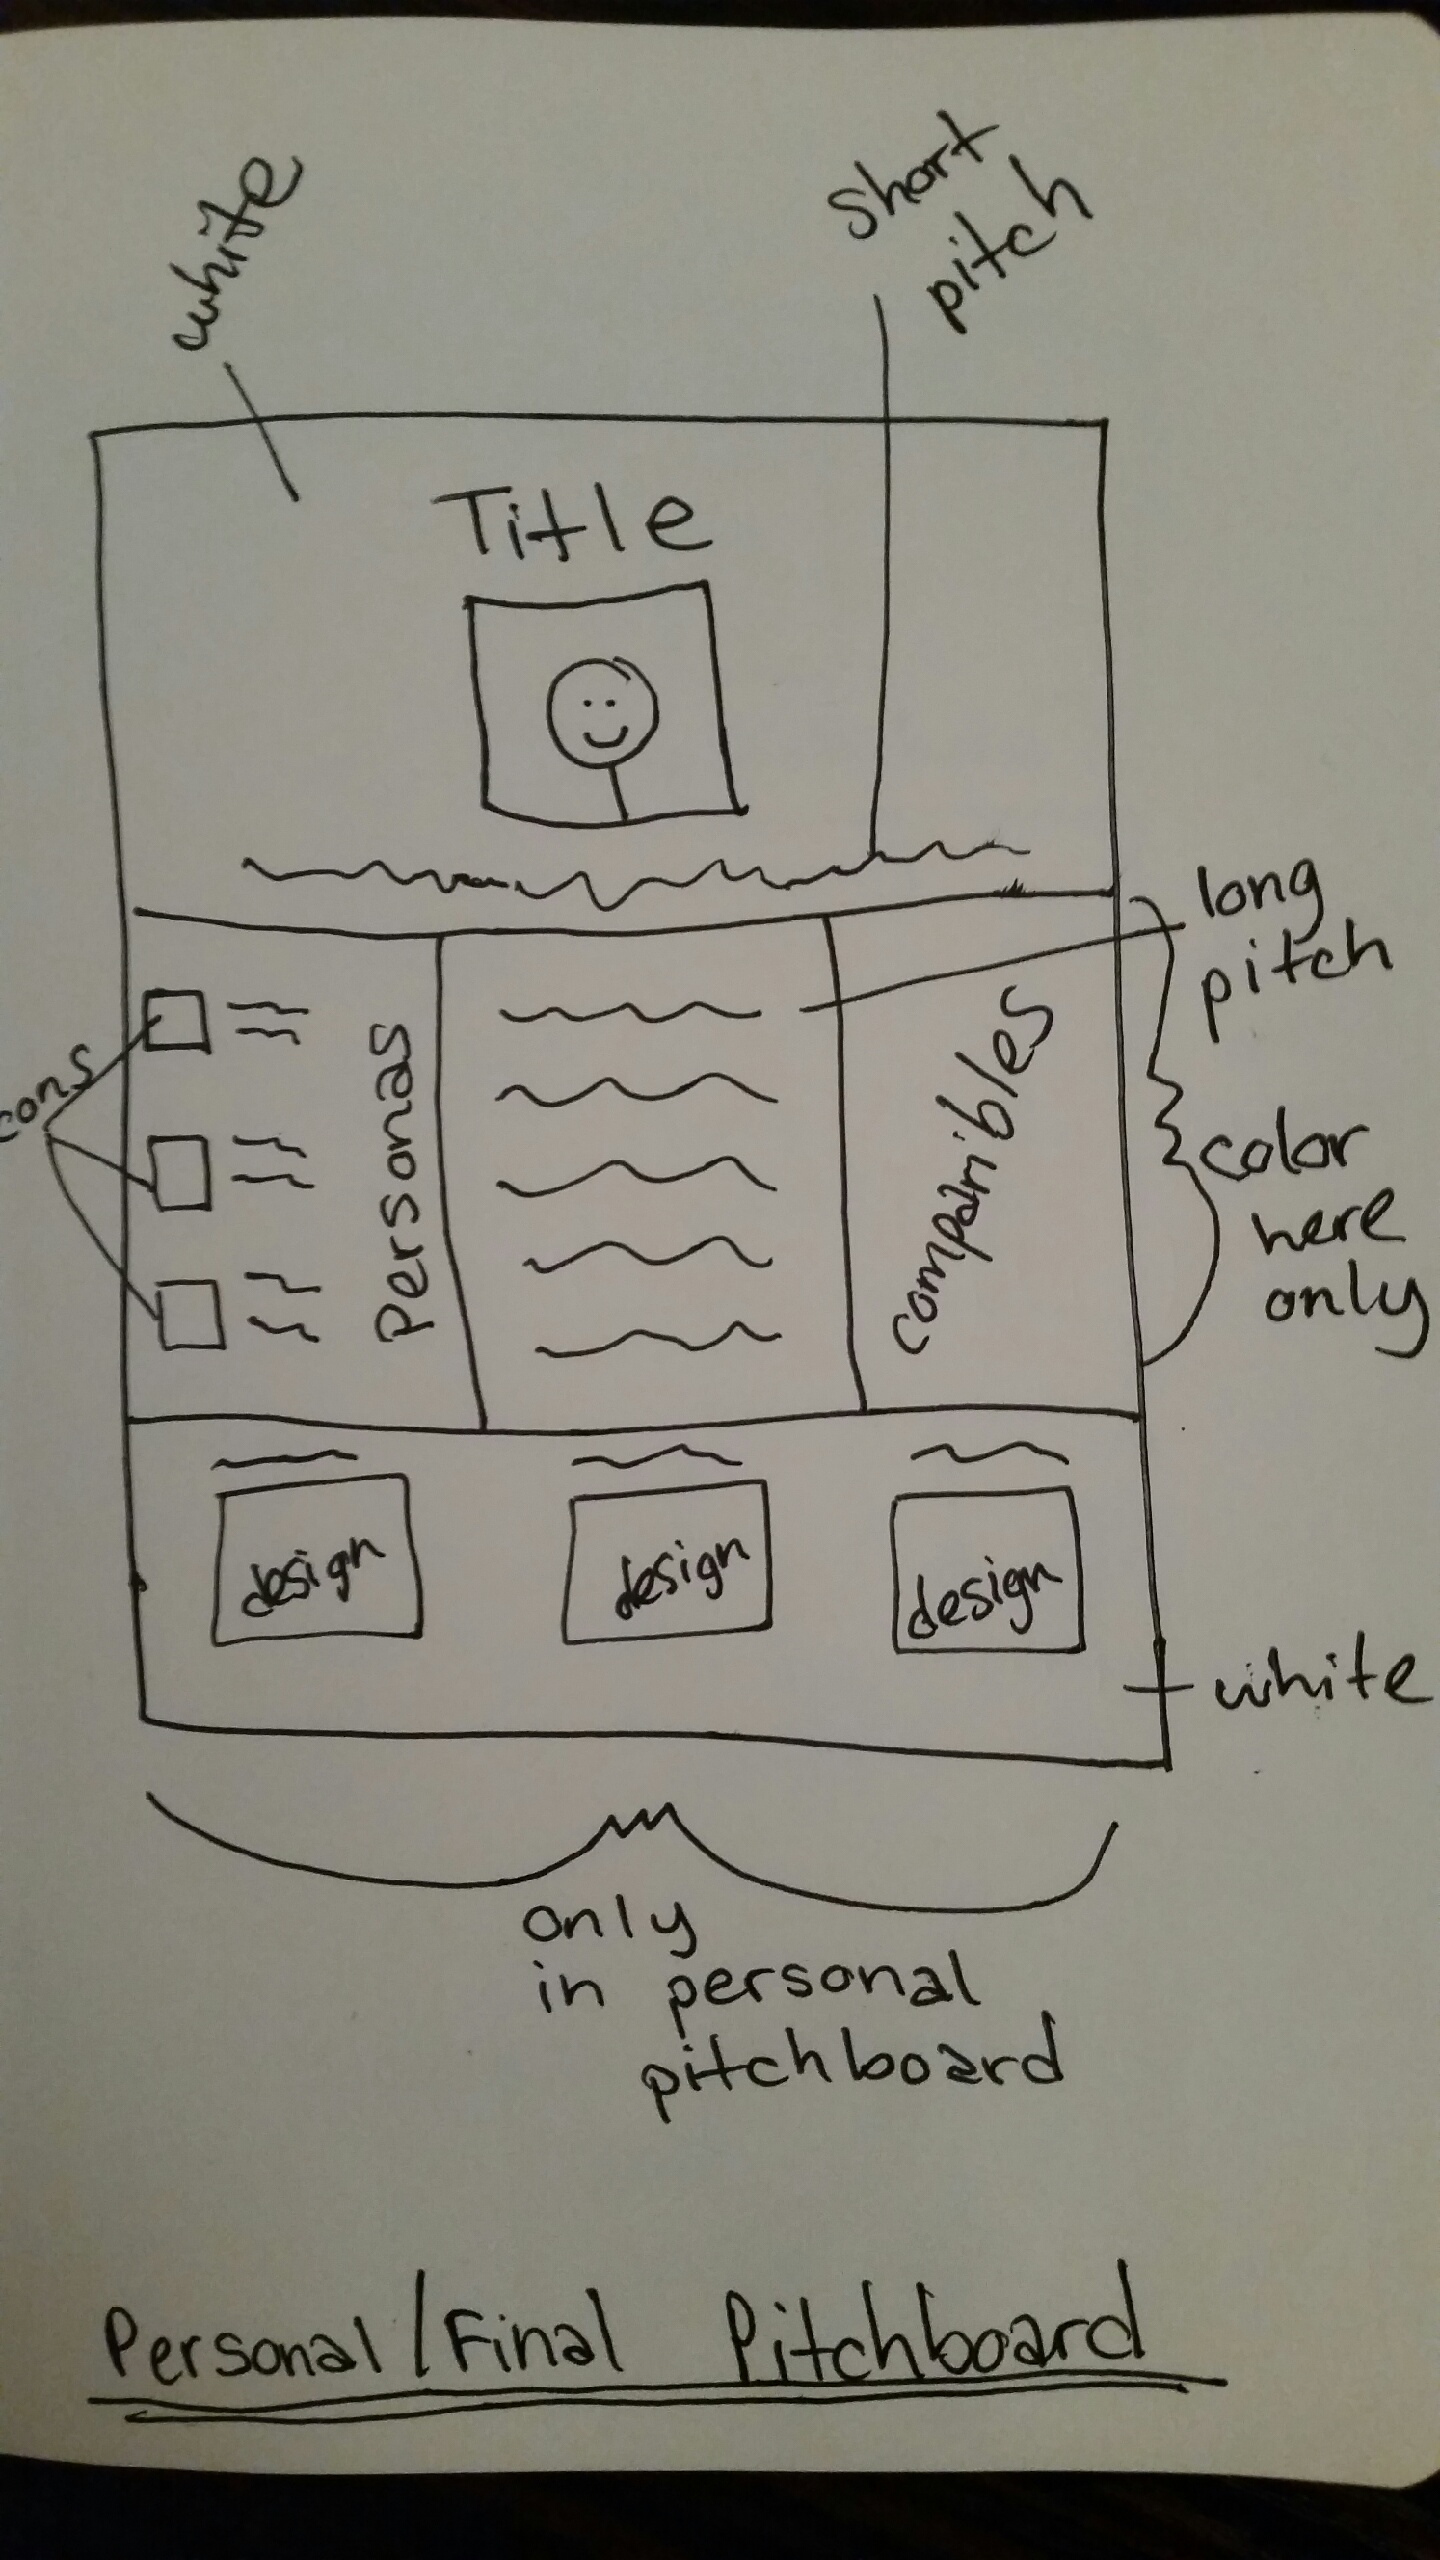 white
short
pitch
Title
long
pitch
cons
Personas
comparibles
color
here
only
design
design
design
white
only
in personal
pitchboard
Personal/Final Pitchboard